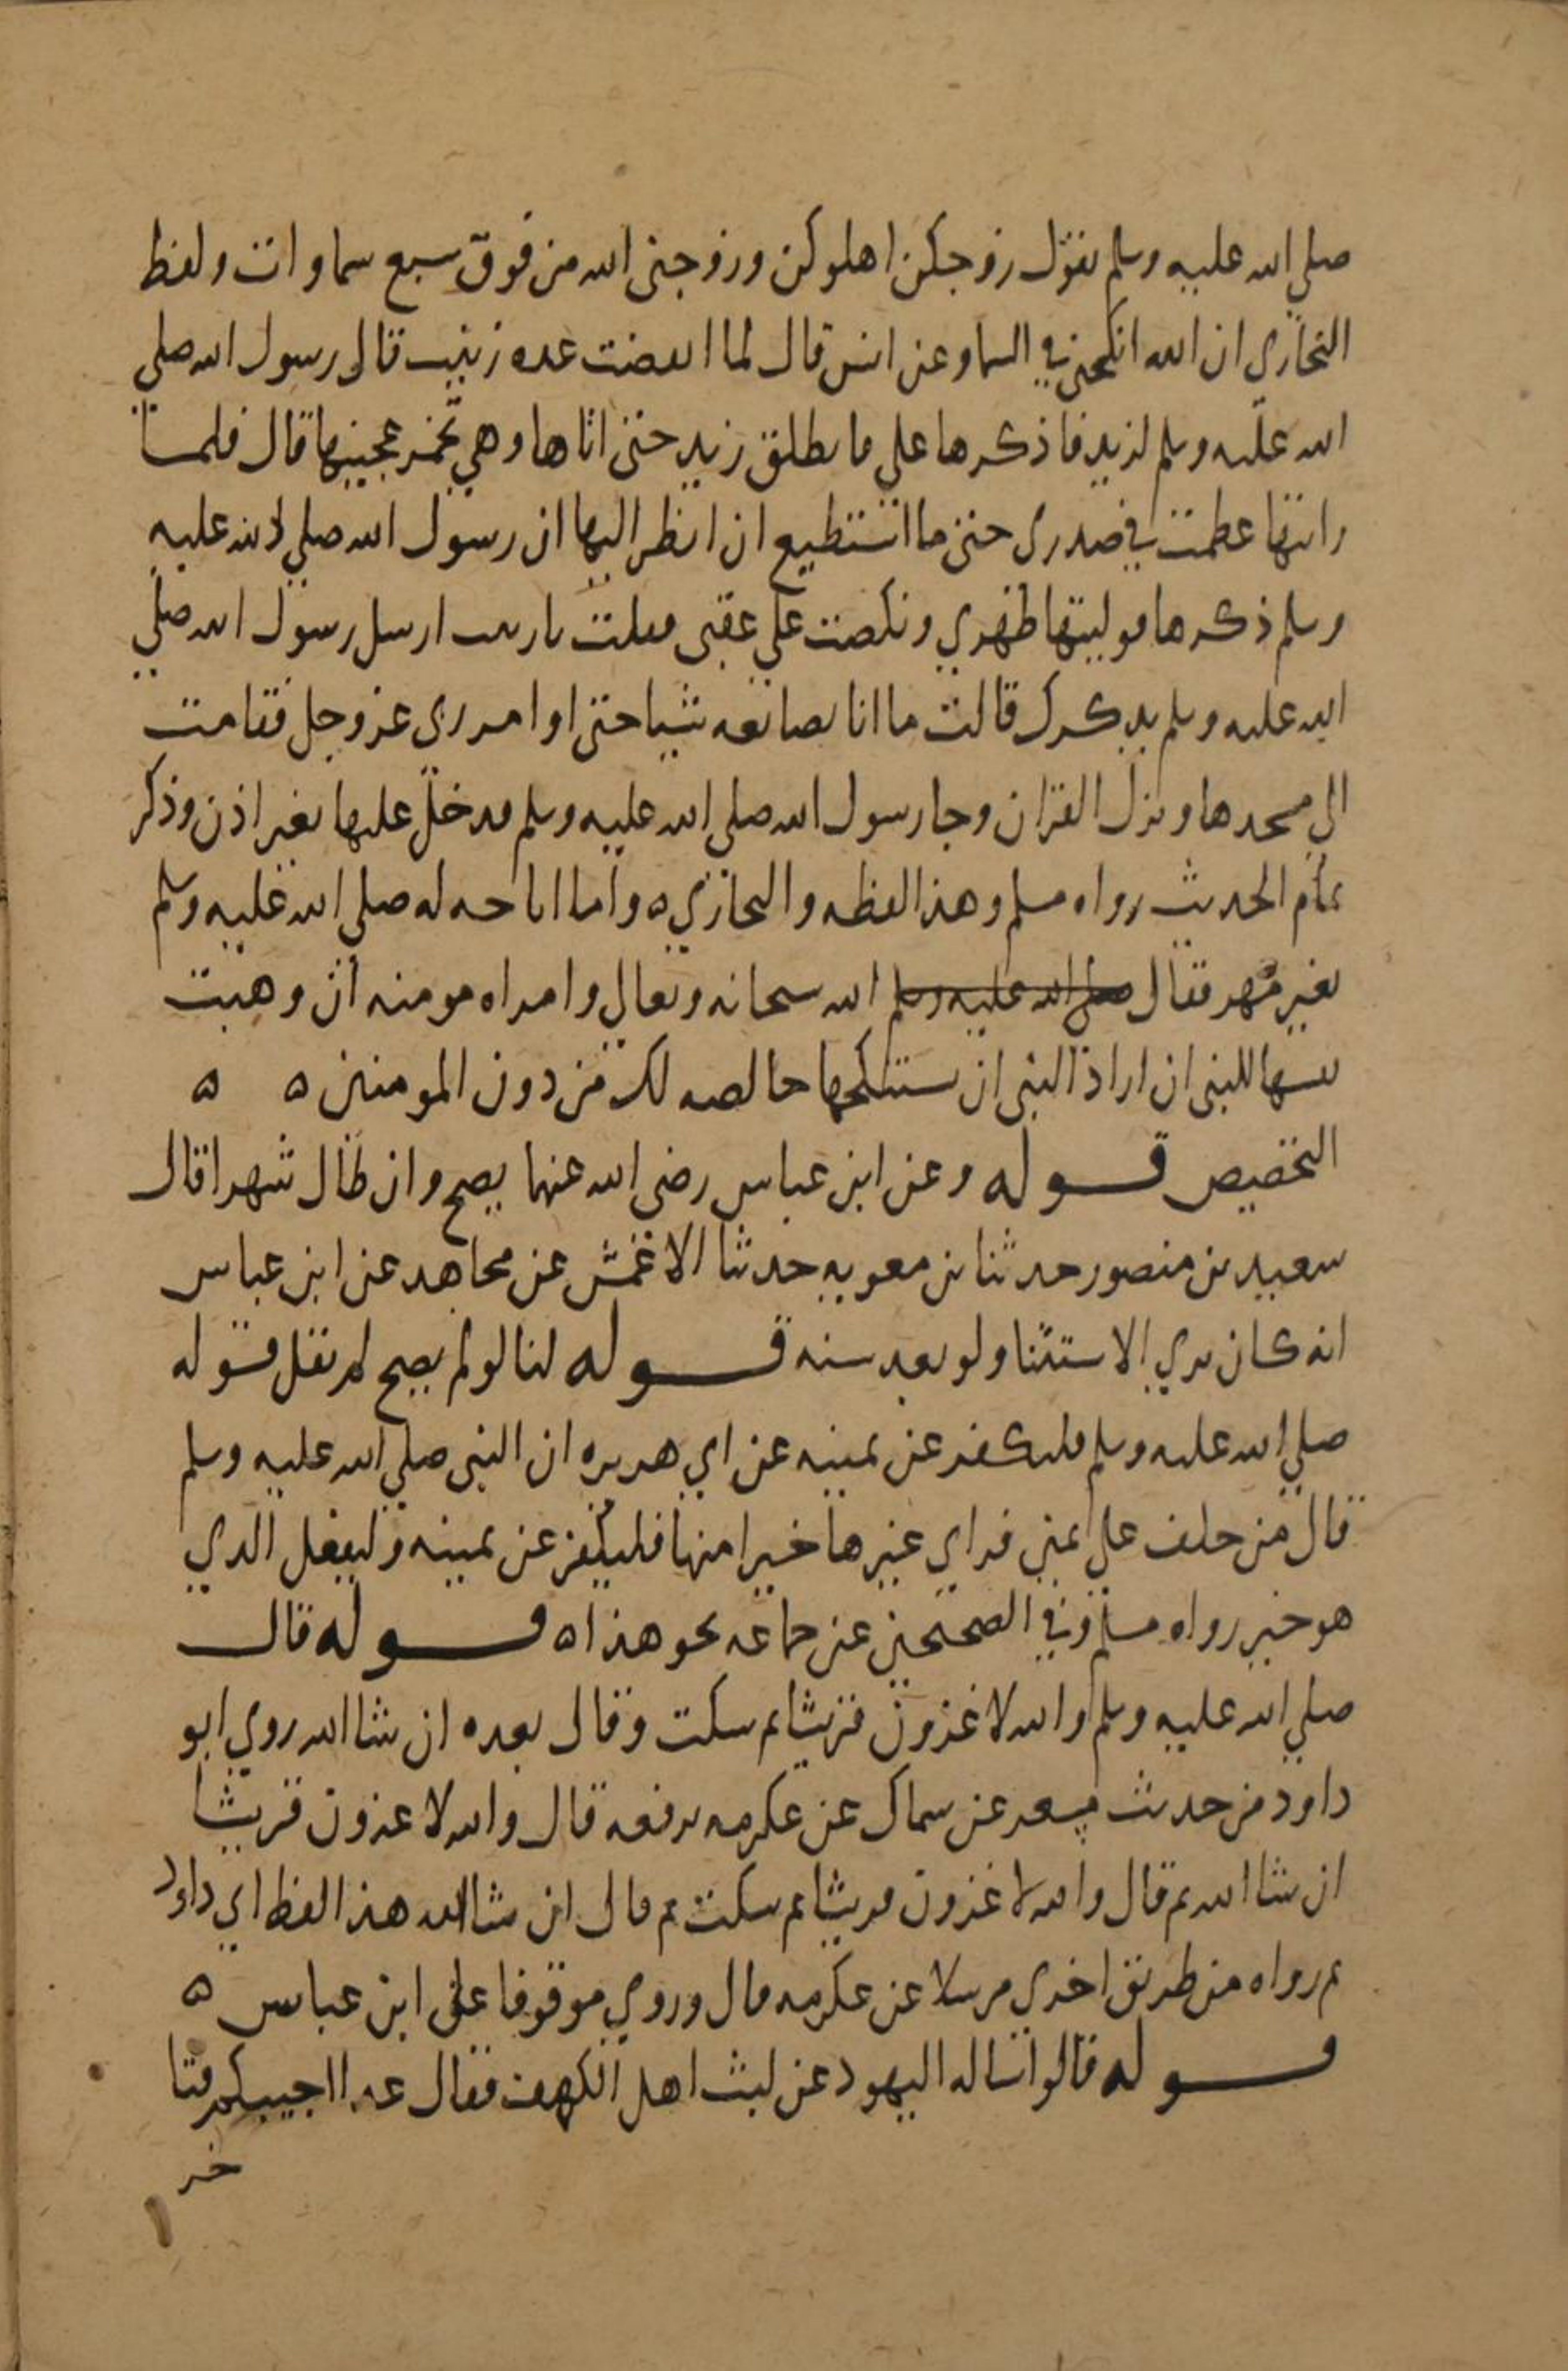 صلي الله عليه وسلم تقول زوجكن اهلوكن وزوجني الله من فوق سبع سماوات ولفظ
البخاري ان الله انكحني في السما وعن انس قال لما انقضت عده زينب قال رسول الله صلي
الله عليه وسلم لزيد فاذكرها علي فانطلق زيد حتى اتاها وهي تخمر عجينها قال فلما
رايتها عظمت في صدري حتى ما استطيع ان انظر اليها ان رسول الله صلي الله عليه
وسلم ذكرها فوليتها ظهري ونكصت علي عقبي فقلت يازينب ارسل رسول الله صلي
الله عليه وسلم يذكرك قالت ما انا بصانعه شيا حتى اوامر ربي عز وجل فقامت
الي مسجدها ونزل القران وجا رسول الله صلي الله عليه وسلم فدخل عليها بغير اذن وذكر
تمام الحديث رواه مسلم وهذا لفظه والبخاري ه واما اباحه له صلي الله عليه وسلم
بغير مهر فقال صلي الله عليه وسلم الله سبحانه وتعالي وامراه مومنه ان وهبت
نفسها للنبي ان اراد النبي ان يستنكحها خالصه لك من دون المومنين ه ه
التخصيص قوله وعن ابن عباس رضي الله عنهما يصح وان طال شهرا قال
سعيد بن منصور حدثنا بن معويه حدثنا الاعمش عن مجاهد عن ابن عباس
انه كان يري الاستثنا ولو بعد سنه قوله لنا لو لم يصح لم نقل قوله
صلي الله عليه وسلم فليكفر عن يمينه عن ابي هريره ان النبي صلي الله عليه وسلم
قال من حلف علي يمين فراي غيرها خيرا منها فليكفر عن يمينه وليفعل الذي
هو خير رواه مسلم وفي الصحيحين عن جماعه نحو هذا ه قوله قال
صلي الله عليه وسلم والله لاغزون قريشا ثم سكت وقال بعده ان شا الله روي ابو
داود من حديث مسعر عن سماك عن عكرمه يرفعه قال والله لاغزون قريشا
ان شا الله ثم قال والله لاغزون قريشا ثم سكت ثم قال ان شا الله هذا لفظ ابي داود
ثم رواه من طريق اخري مرسلا عن عكرمه قال وروي موقوفا علي ابن عباس ه
قوله قالوا ساله اليهود عن لبث اهل الكهف فقال غدا اجيبكم فتا
خر